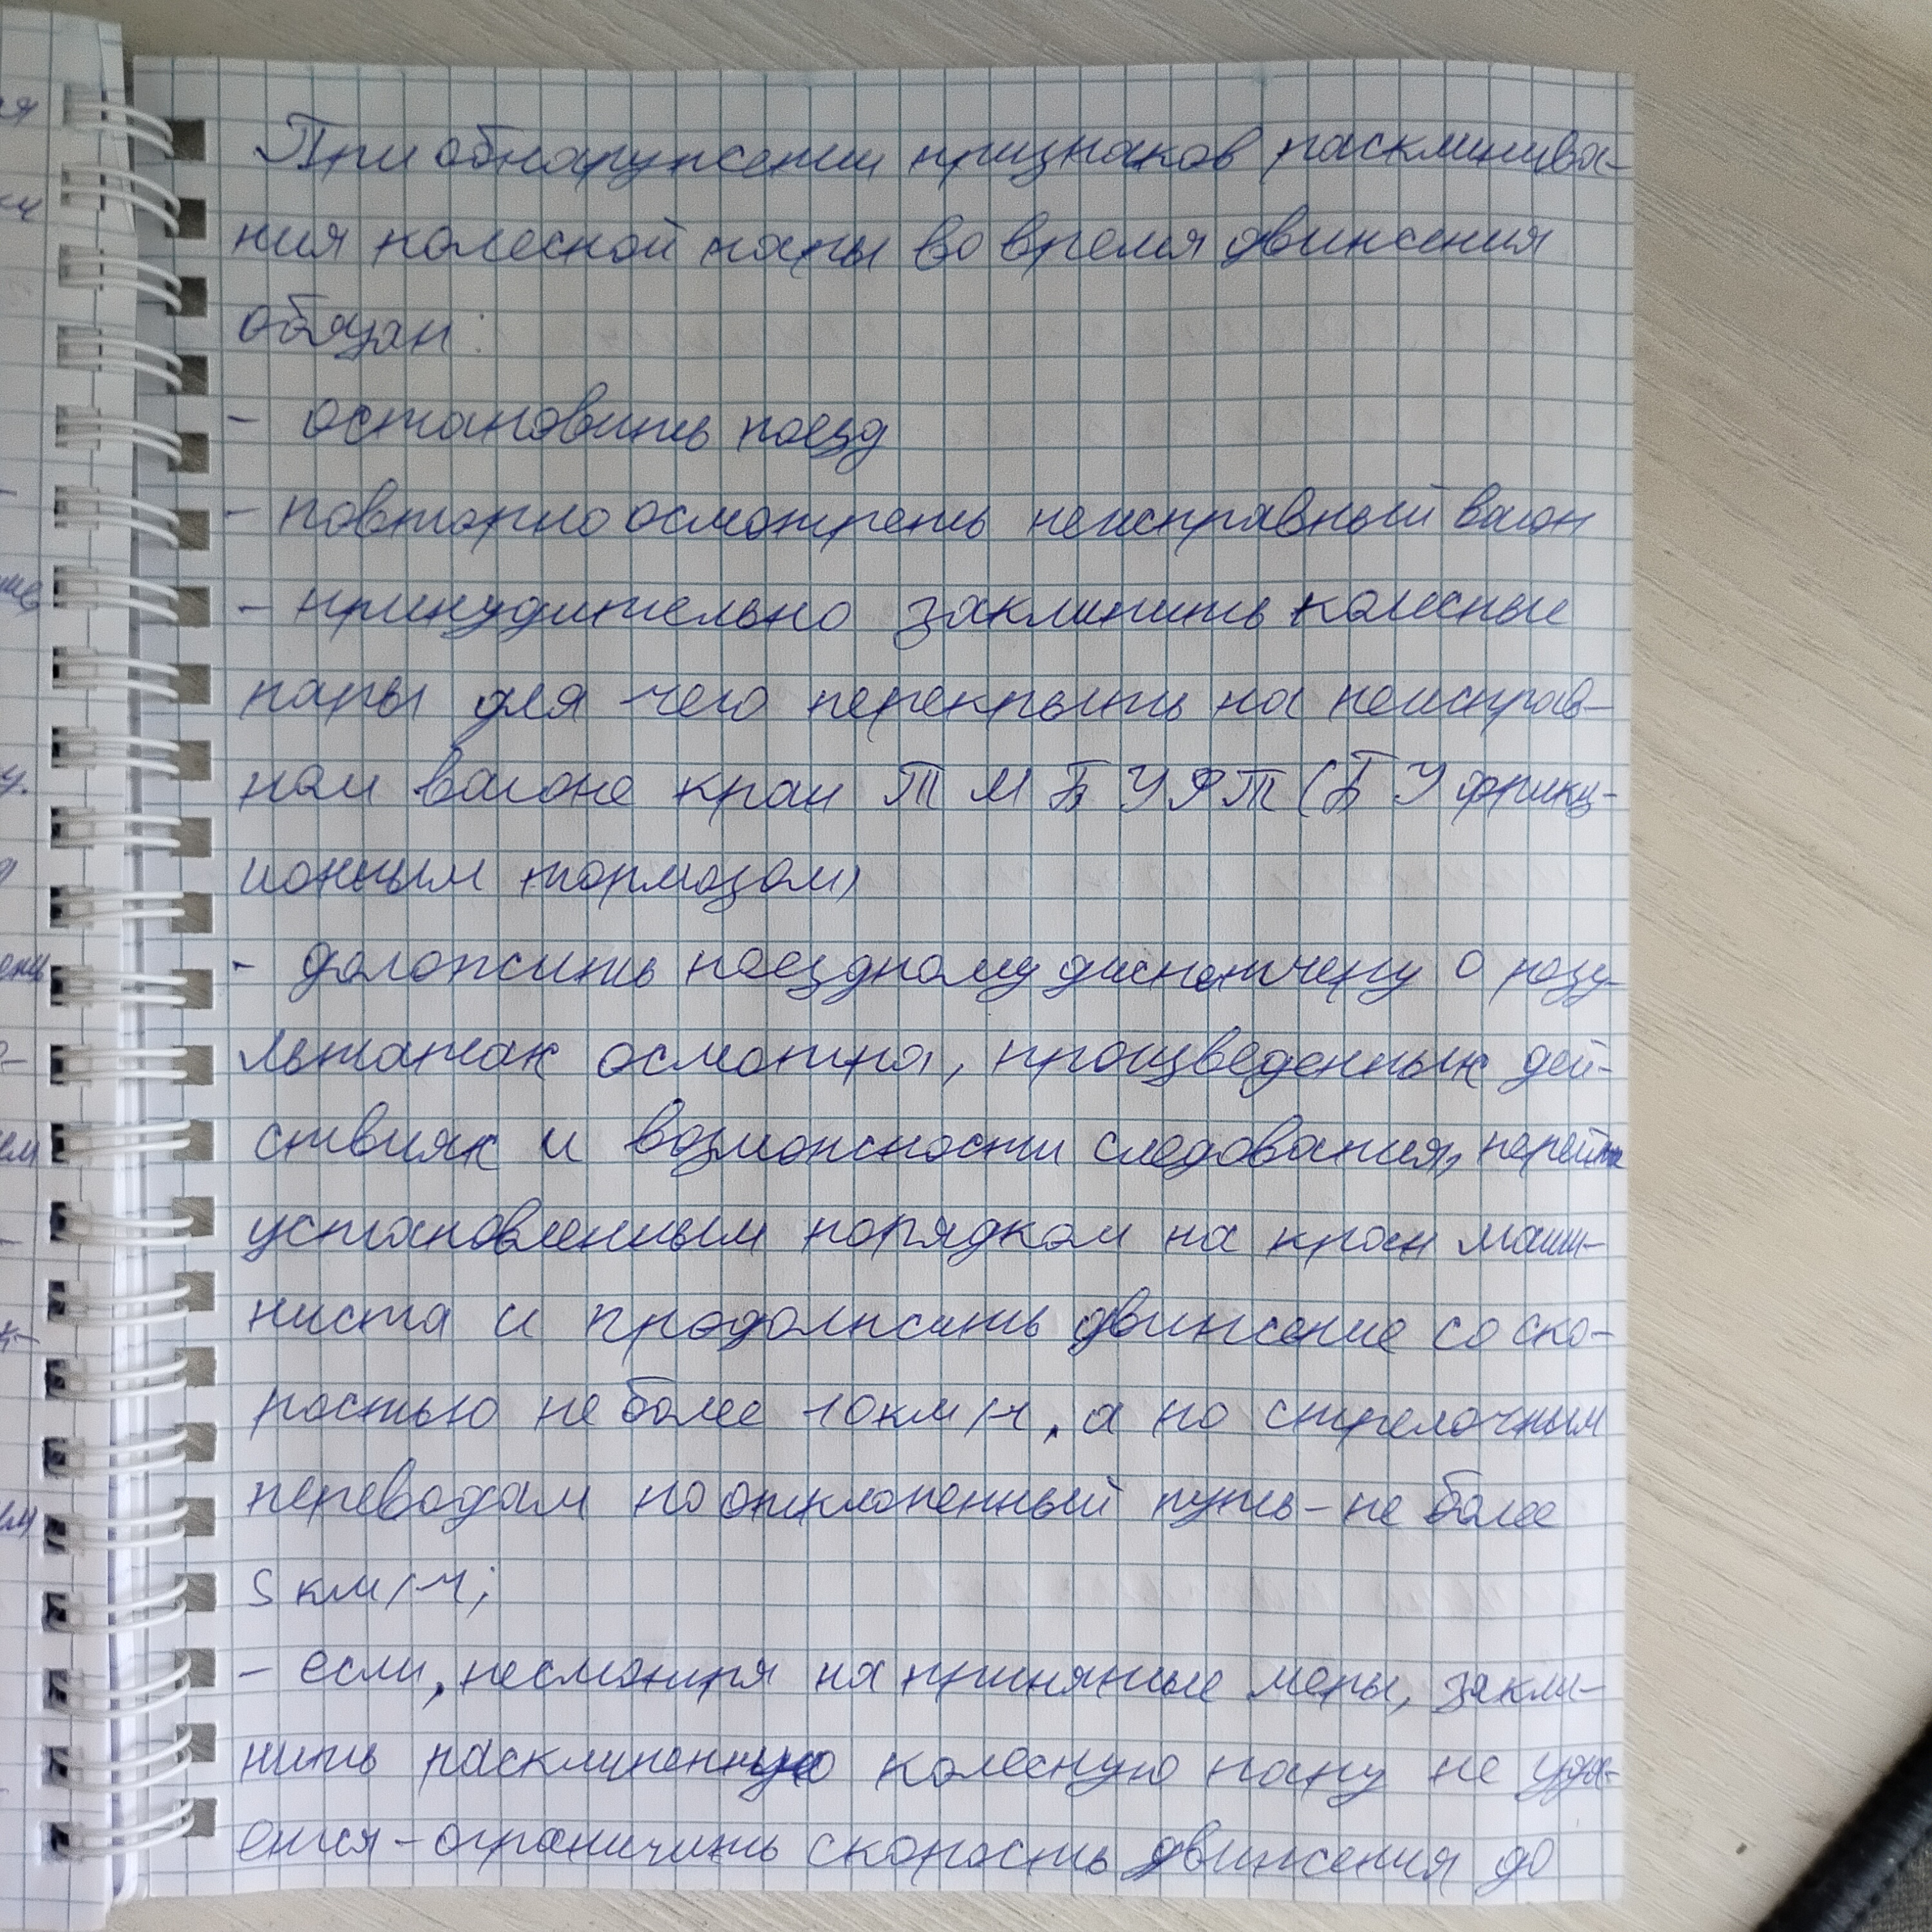 При обнаружении признаков расклинива-
ния колесной пары во время движения
обязан:
- остановить поезд
- повторно осмотреть неисправный вагон
- принудительно заклинить колесные
пары для чего перекрыть на неисправ-
ном вагоне кран ТМ БУФТ (БУ фрикц-
ионным тормозом)
- доложить поездному диспетчеру о резу-
льтатах осмотра, произведенных дей-
ствиях и возможности следования, перейти
установленным порядком на кран маши-
ниста и продолжить движение со ско-
ростью не более 10 км/ч, а по стрелочным
переводам на отклоненный путь - не более
5 км/ч;
- если, несмотря на принятые меры, закли-
нить расклиненную колесную пару не уда-
ется - ограничить скорость движения до